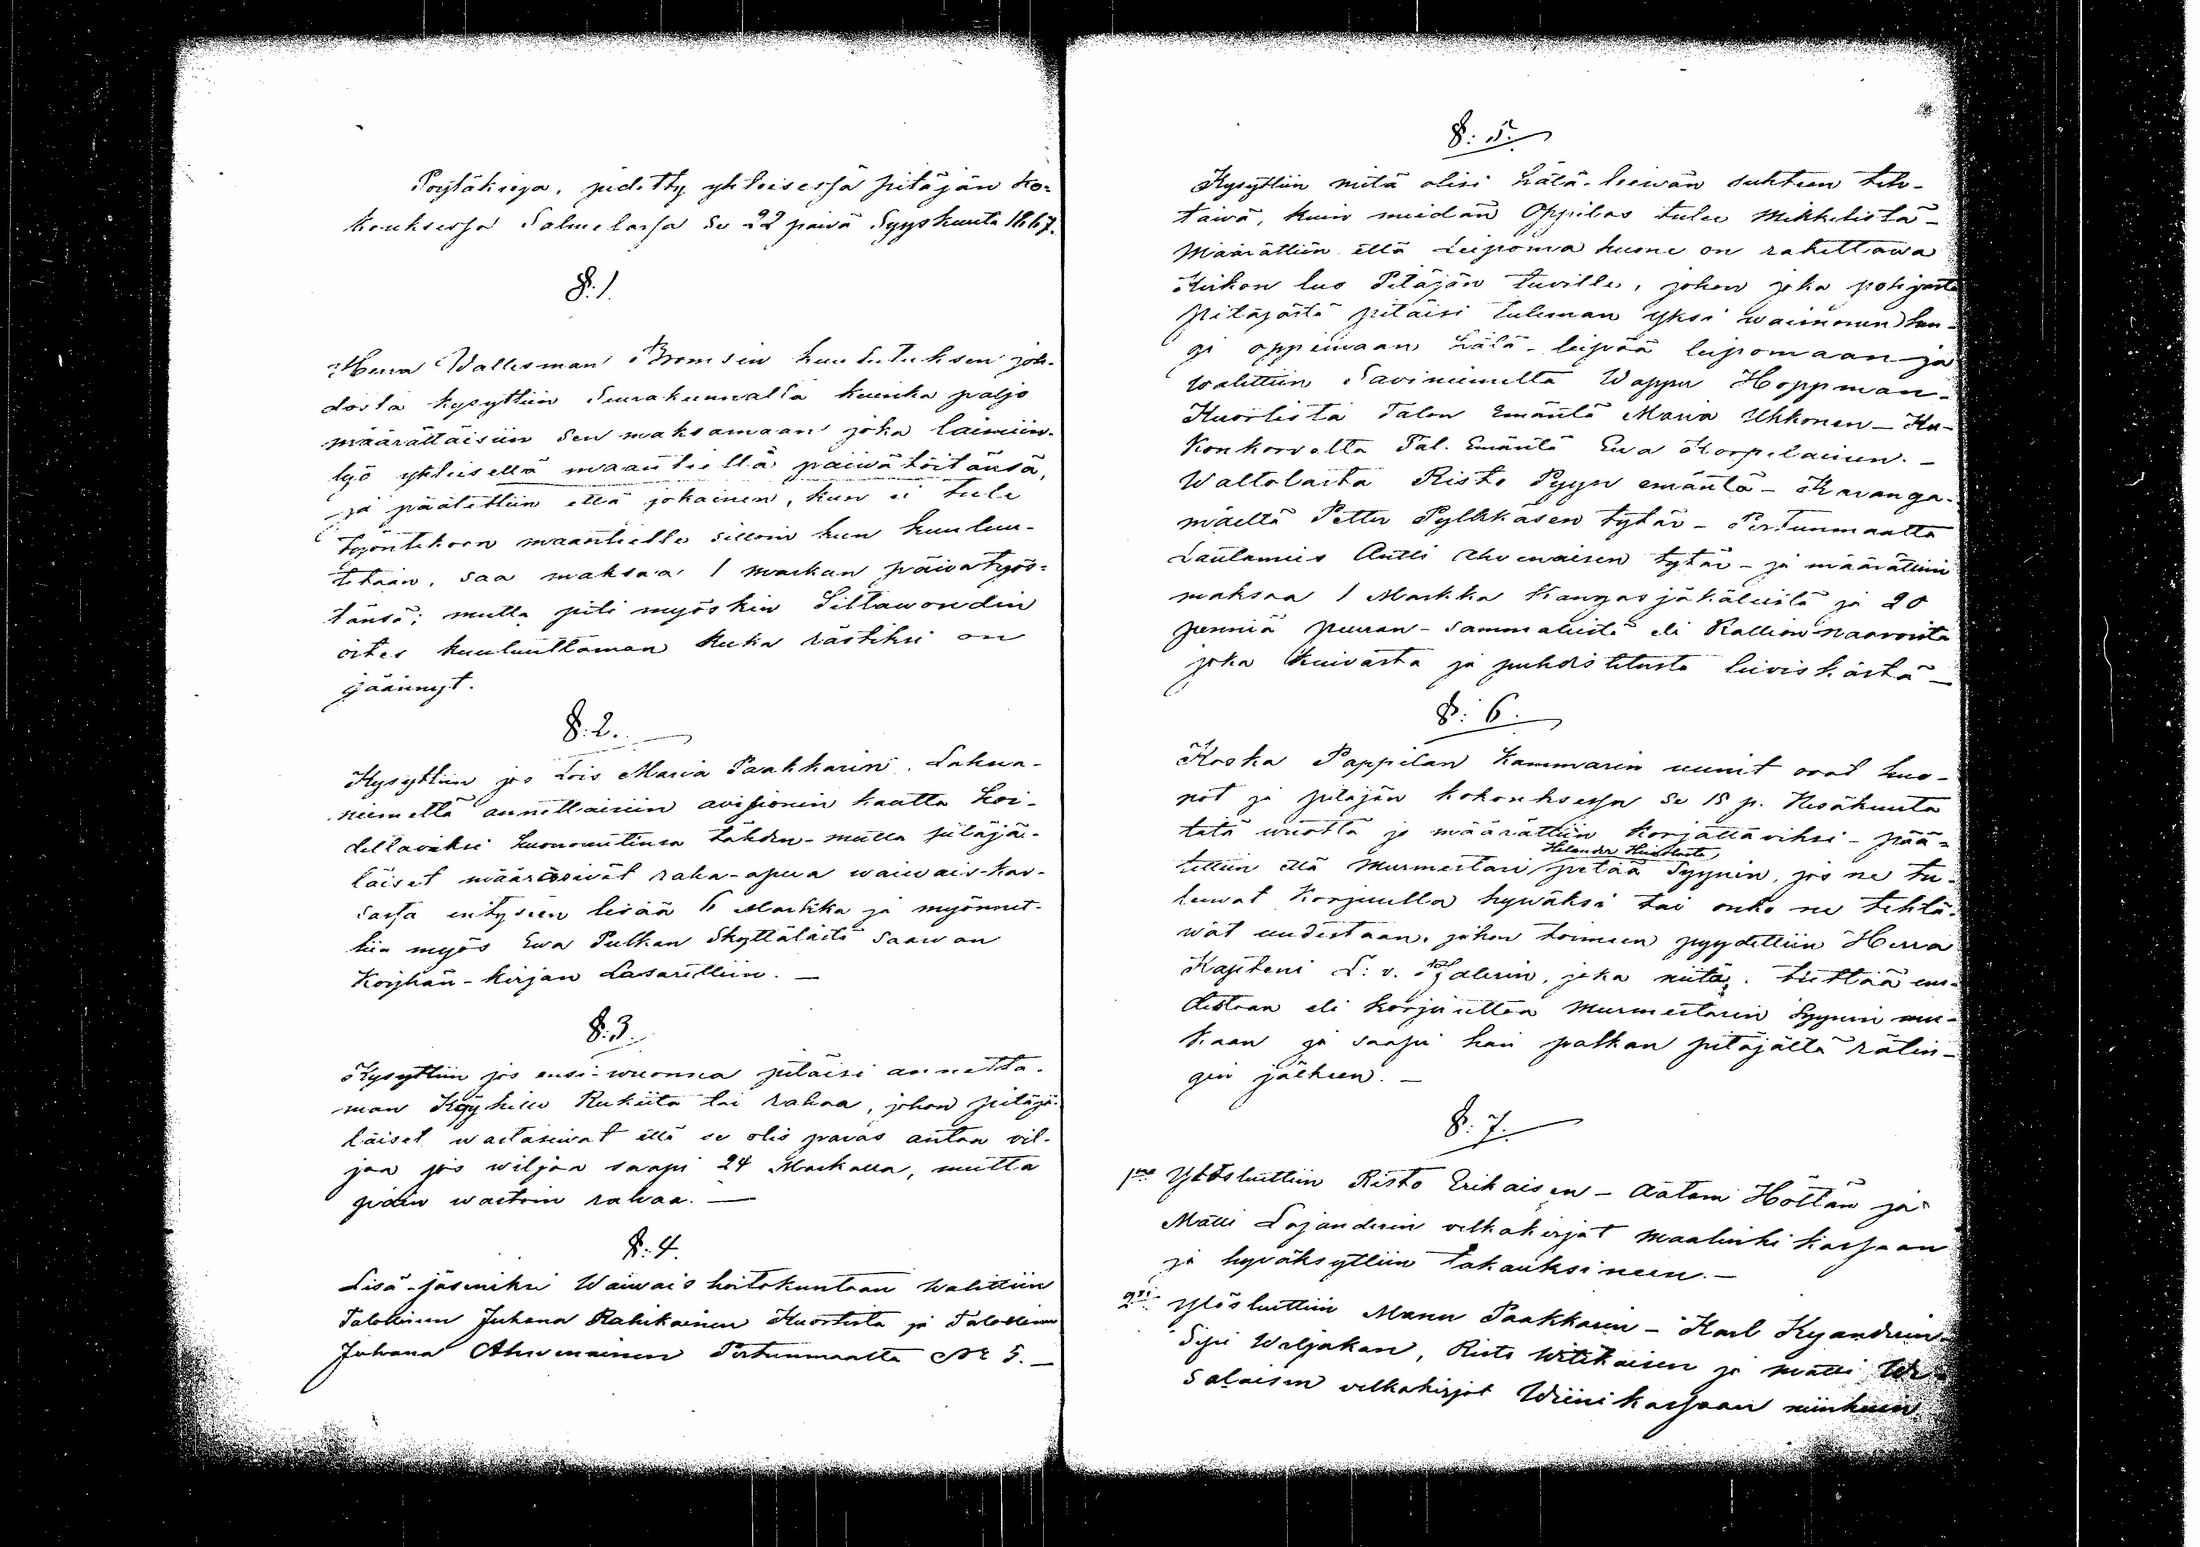 Pöytäkirja, pidetty yhteisessä pitäjän ko-
kouksessa Salmelassa se 22 päivä Syyskuuta 1867.
§. 1.
Herra Wallesman Bromsin kuulutuksen joh-
dosta kysyttiin Seurakunnalta kuinka paljo
määrättäisiin sen maksamaan joka laimiin-
lyö yhteisellä maantiellä päivätöitänsä,
ja päätettiin että jokainen, kun ei tule
työntekoon maantielle silloin kun kuulu-
tetaan, saa maksaa 1 markan päivätyös-
tänsä; mutta piti myöskin Siltawoudin
oites kuuluttaman kuka rästiksi on
jäännyt.
§. 2.
Kysyttiin jos Lois Maria Paakkarin Lahna-
niemeltä annettaisiin avissionin kautta hoi-
dettavaksi huonomitinsa tähden - mutta pitäjä-
läiset määräsivät raha-apua waiwais-kas-
sasta entyseen lisää 6 Markka ja myönnet-
tiin myös Ewa Pulkan Skyttälästä saawan
Köyhän-kirjan Lasarettiin. —
§. 3.
Kysyttiin jos ensi-wuonna pitäisi annetta-
man Köyhille Rukiita tai rahaa, johon pitäjä-
läiset wastasivat että se olis paras antaa vil-
jaa jos wiljaa saapi 24 Markalla, mutta
päin wastoin rahaa. —
§. 4.
Lisä-jäseniksi Waiwais hoitokuntaan walittiin
Talollinen Juhana Rahikainen Kuortista ja Talollinen
Juhana Ahwenainen Pertunmaalta № 5. —
§. 5.
Kysyttiin mitä olisi hätä-leewän suhteen teh-
tävä, kuin meidän Oppilas tulee Mikkelistä -
Määrättiin että Leipoma huone on rakettawa
Kirkon luo Pitäjän tuville, johon joka pohjasta
pitäjästä pitäisi tuleman yksi waimonen hen-
gi oppimaan hätä-leipää leipomaan ja
walittiin Savniemeltä Wappu Hoppman -
Kuortista Talon Emäntä Maria Ukkonen - Ku-
konkorvelta Tal. Emäntä Ewa Korpelainen. -
Waltolasta Risto Pyyn emäntä - Karanga-
mäeltä Petter Pylkkäsen tytär - Pertunmaalta
Lautamies Antti Ahwenaisen tytär - ja määrättiin
maksaa 1 Markka Kangasjäkäleistä ja 20
penniä peuran-sammaleista eli Kallion naavoista
joka kuivasta ja puhdistetusta leiviskästä —
§. 6.
Koska Pappilan Kammarin uunit ovat huo-
not ja pitäjän kokouksessa se 15 p. Kesäkuuta
tätä wuotta jo määrättiin korjattaviksi - pää-
Helander
tettiin että Murmestari pitää Syynin, jos ne tu-
lewat korjuulla hywäksi tai onko ne tehtä-
wät uudestaan, johon toimeen pyydettiin Herra
Kapteni L: v. joka niitä teettää uu-
destaan eli korjuuttaa Murmestarin Syynin mu-
kaan ja saapi hän palkan pitäjältä rätin-
gin jälkeen. —
§. 7.
1no Ylösluettiin Risto Erikaisen - Aatam Höltän ja
Matti Lojanderin velkakirjat maalinki kassaan
ja hyväksyttiin takauksineen. —
2si Ylösluettiin Manu Paakkarin - Karl Kyanderin
Sipi Waljakan, Risto Witikaisen ja Matti We-
salaisen velkakirjat Wiinikassaan niinkuin